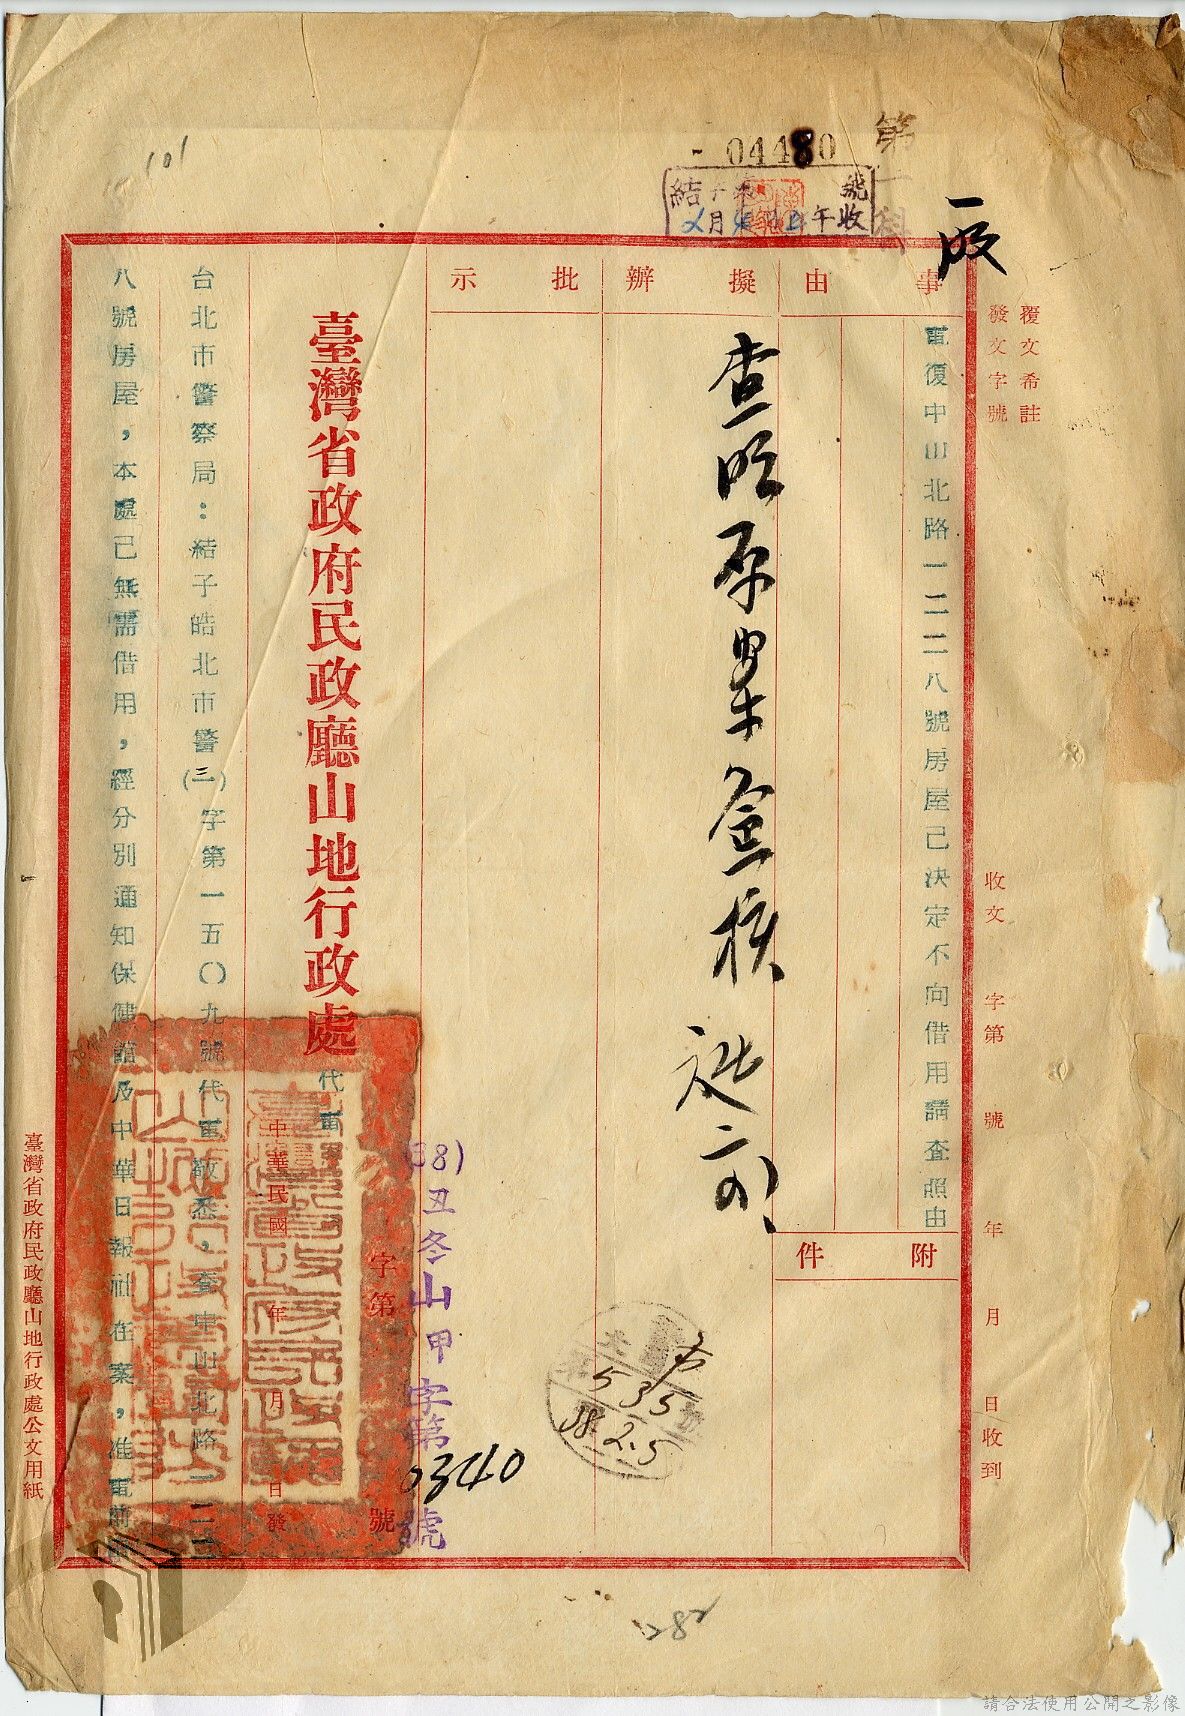 101
- 04480
第一科
結子第 號
2月 午收
一股
覆文希註
發文字號
收文 字第 號 年 月 日收到
事由
電復中山北路一二二八號房屋已決定不向借用請查照由
附件
擬辦
查明原案簽核
批示
臺灣省政府民政廳山地行政處
代電
中華民國 年 月 日發
字第 號
(38)丑冬山甲字第0340號
535
38.2.5
台北市警察局：結子皓北市警(三)字第一五〇九號代電敬悉，查中山北路一二二
八號房屋，本處已無需借用，經分別通知保健館及中華日報社在案，准電前
臺灣省政府民政廳山地行政處公文用紙
282
請合法使用公開之影像